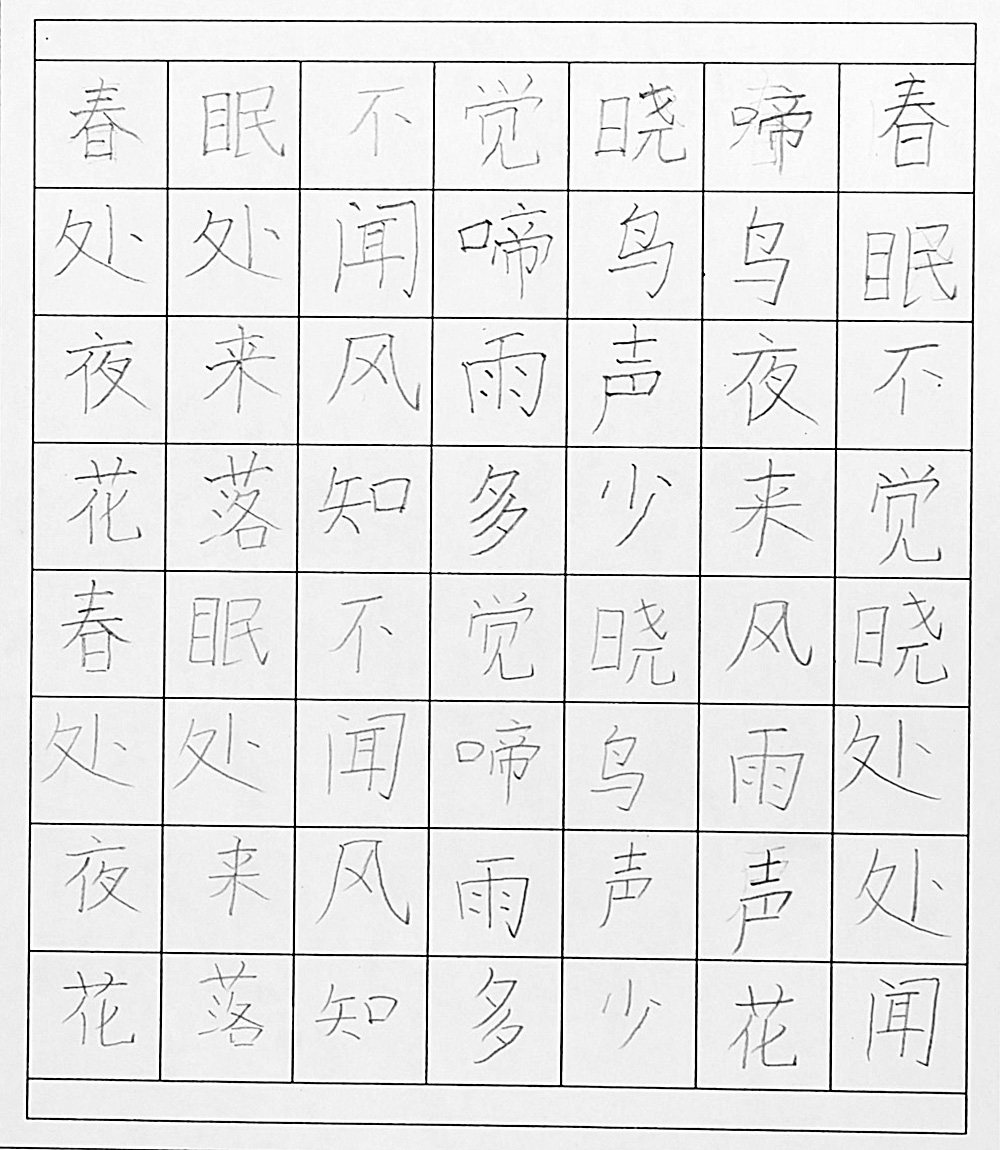 春眠不觉晓啼春
处处闻啼鸟鸟眠
夜来风雨声夜不
花落知多少来觉
春眠不觉晓风晓
处处闻啼鸟雨处
夜来风雨声声处
花落知多少花闻